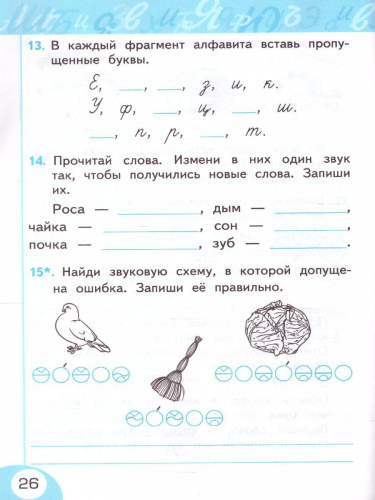 13. В каждый фрагмент алфавита вставь пропу-
щенные буквы.
Е, ___, ___, з, и, к.
У, ф, ___, ц, ___, ш.
___, п, р, ___, т.
14. Прочитай слова. Измени в них один звук
так, чтобы получились новые слова. Запиши
их.
Роса — ___, дым — ___,
чайка — ___, сон — ___,
почка — ___, зуб — ___.
15*. Найди звуковую схему, в которой допуще-
на ошибка. Запиши её правильно.
26